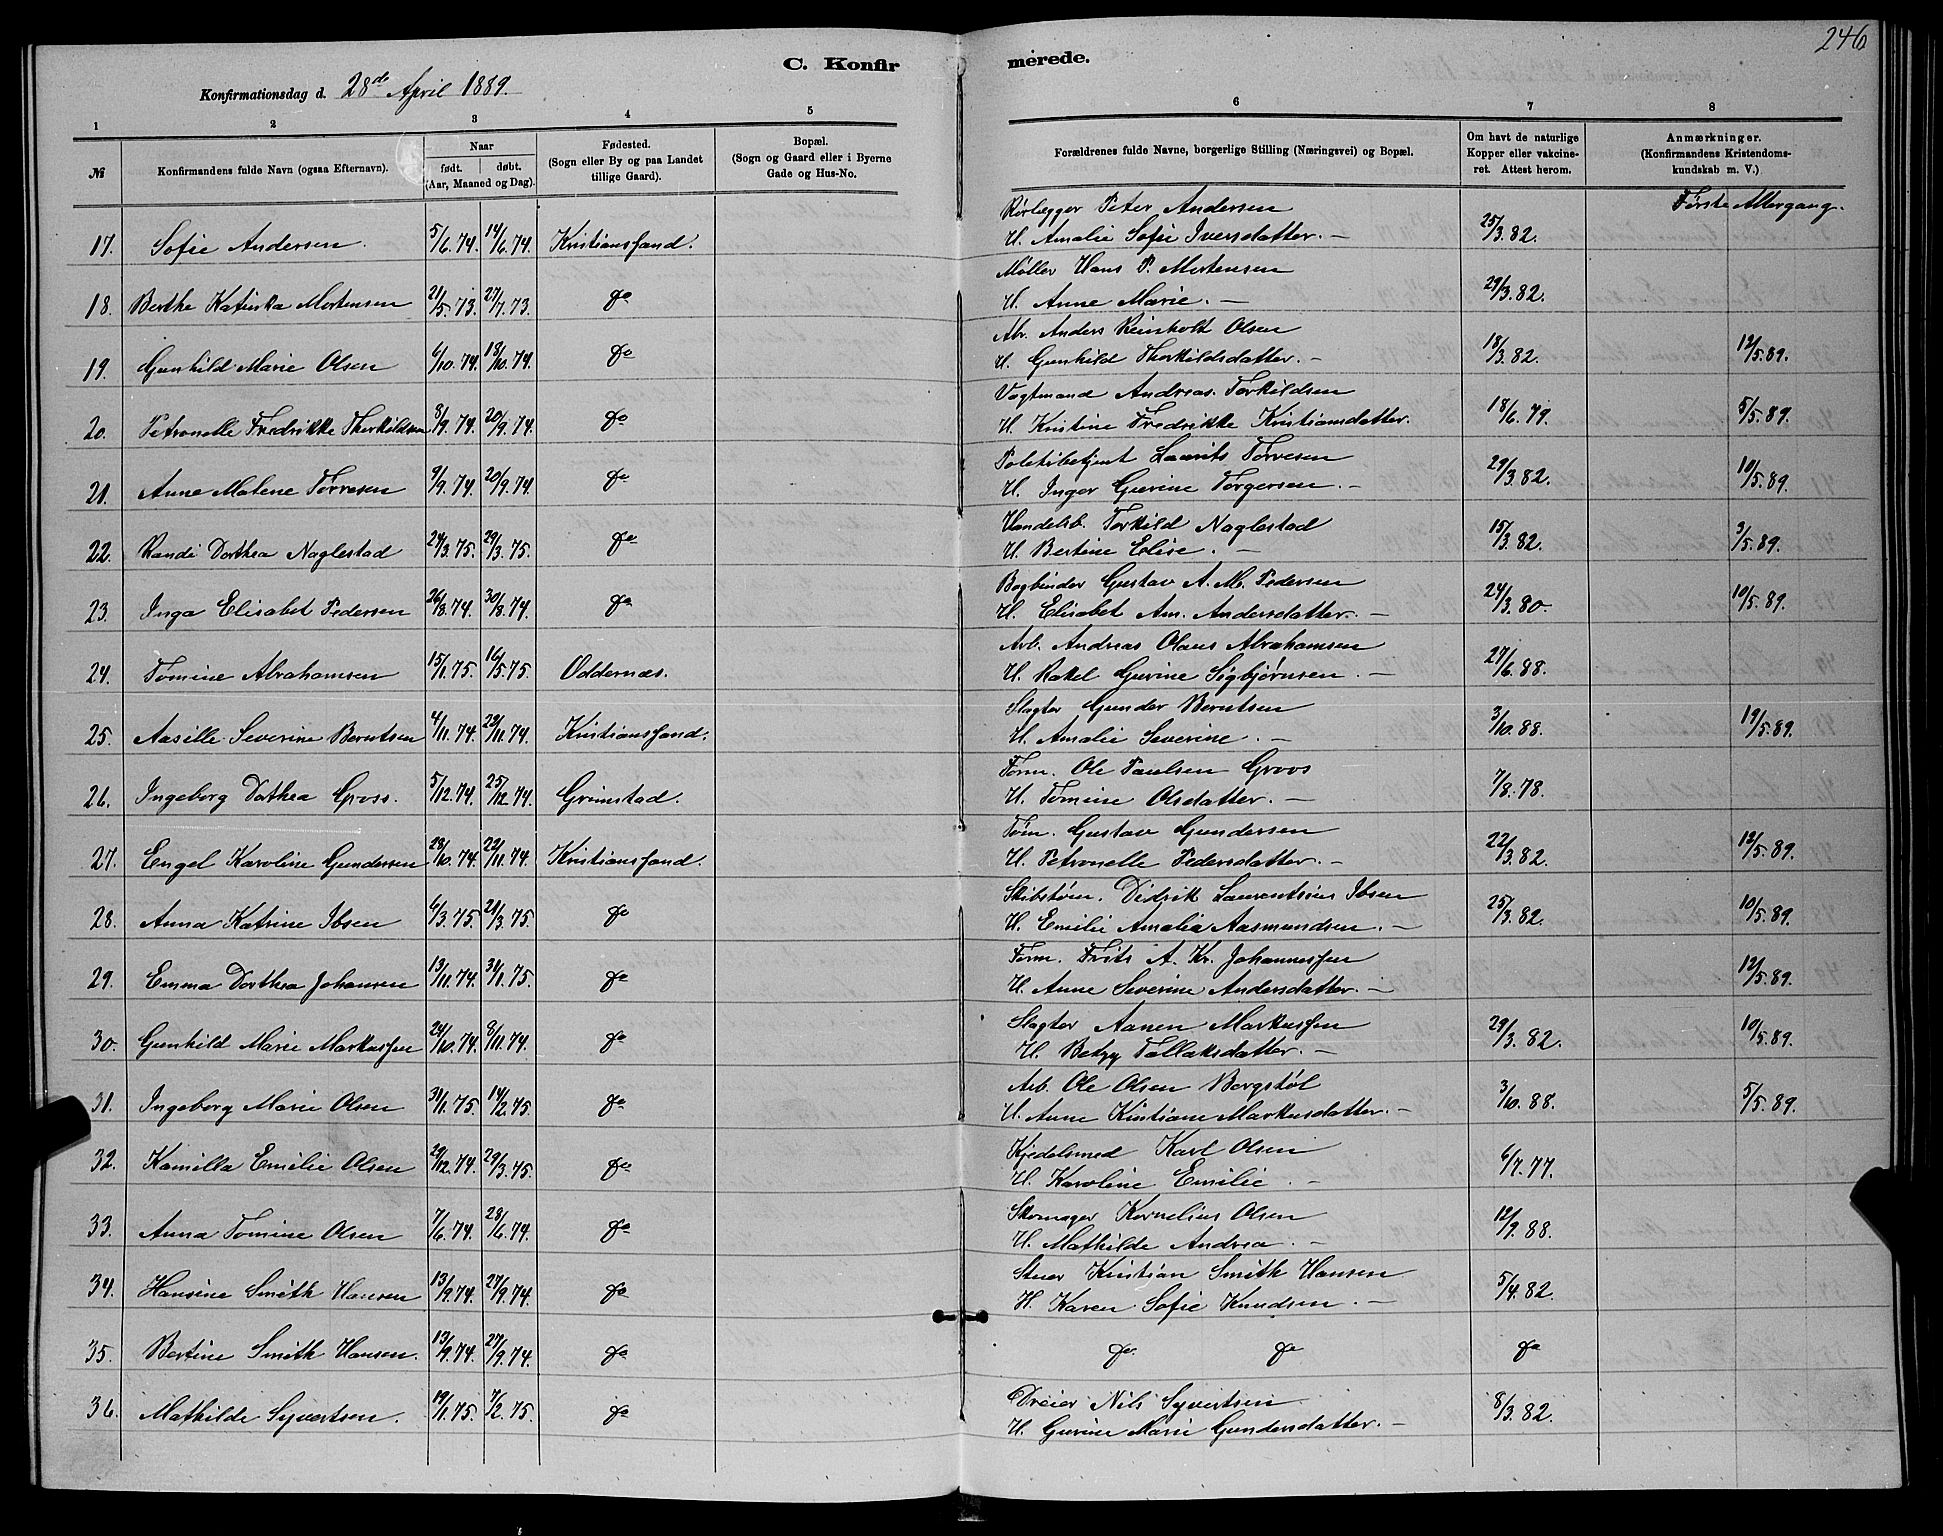 246
C. Konfir merede.
Konfirmationsdag d. 28de April 1889.
1 2 3 4 5 6 7 8
№ Konfirmandens fulde Navn (ogsaa Efternavn). Naar født. døbt. (Aar, Maaned og Dag). Fødested. (Sogn eller By og paa Landet tillige Gaard). Bopæl. (Sogn og Gaard eller i Byerne Gade og Hus-No. Forældrenes fulde Navne, borgerlige Stilling (Næringsvei) og Bopæl. Om havt de naturlige Kopper eller vakcineret. Attest herom. Anmærkninger. (Konfirmandens Kristendomskundskab m. V.)
Første Altergang.
17. Sofie Andersen 5/6.74. 14/6.74. Kristianssand. Rørlægger Peter Andersen 25/3.82.
H. Amalie Sofie Iversdatter. –
18. Berthe Katinka Mortensen 21/5.73. 27/7.73. do Møller Hans P. Mortensen 29/3.82.
H. Anne Marie. –
19. Gunhild Marie Olsen 6/10.74. 18/10.74. do Arb. Anders Reinholt Olsen 18/3.82. 12/5.89.
H. Gunhild Thorkildsdatter. –
20. Petronelle Fredrikke Thorkildsen 8/9.74. 20/9.74. do Vogtmand Andreas Torkildsen 18/6.79. 5/5.89.
H. Kristine Fredrikke Kristiansdatter.
21. Anne Malene Tørresen 9/9.74. 20/9.74. do Politibetjent Laurits Tørresen 29/3.82. 10/5.89.
H. Inger Gurine Torgersen. –
22. Randi Dorthea Naglestad 24/3.75. 29/3.75. do Handelsb. Torkild Naglestad 15/3.82. 3/5.89.
H. Bertine Elise. –
23. Inga Elisabet Pedersen 26/8.74. 30/8.74. do Bogbinder Gustav A. M. Pedersen 24/3.80. 10/5.89.
H. Elisabet Am. Andersdatter. –
24. Tomine Abrahamsen 15/1.75. 16/5.75. Oddernæs. Arb. Andreas Olaus Abrahamsen 27/6.88.
H. Rakel Gurine Sigbjørnsen. –
25. Aasille Severine Berntsen 4/11.74. 23/11.74. Kristianssand. Slagter Gunder Berntsen 3/10.88. 19/5.89.
H. Amalie Severine. –
26. Ingeborg Dorthea Gross. 5/12.74. 25/12.74. Grimstad. Tøm. Ole Paulsen Groos 7/8.78.
H. Tomine Olsdatter. –
27. Engel Karoline Gundersen 28/10.74. 22/11.74. Kristianssand. Tøm. Gustav Gundersen 22/3.82. 12/5.89.
H. Petronelle Pedersdatter. –
28. Anna Katrine Ibsen 6/3.75. 21/3.75. do Skibstøm. Didrik Laurentsius Ibsen 25/3.82. 10/5.89.
H. Emilie Amalia Aasmundsen. –
29. Emma Dorthea Johansen 13/11.74. 31/1.75. do Tøm. Frits A. Kr. Johannessen 12/5.89.
H. Anne Severine Andersdatter. –
30. Gunhild Marie Markussen 24/10.74. 8/11.74. do Slagter Aanen Markussen 29/3.82. 10/5.89.
H. Betzy Tallaksdatter. –
31. Ingeborg Marie Olsen 31/1.75. 14/2.75. do Arb. Ole Olsen Bergstøl 3/10.88. 5/5.89.
H. Anne Kristiane Markusdatter. –
32. Kamilla Emilie Olsen 29/12.74. 29/3.75. do Kjedelsmed Karl Olsen 6/7.77.
H. Karoline Emilie. –
33. Anna Tomine Olsen 7/6.74. 28/6.74. do Skomager Kornelius Olsen 12/9.88.
H. Mathilde Andrea. –
34. Hansine Smith Hansen 13/9.74. 27/9.74. do Stuer Kristian Smith Hansen 5/4.82.
H. Karen Sofie Knudsen. –
35. Bertine Smith Hansen. 13/9.74. 27/9.74. do do do do
36. Mathilde Syvertsen. 19/1.75. 7/2.75. do Dreier Nils Syvertsen 8/3.82.
H. Gurine Marie Gundersdatter. –